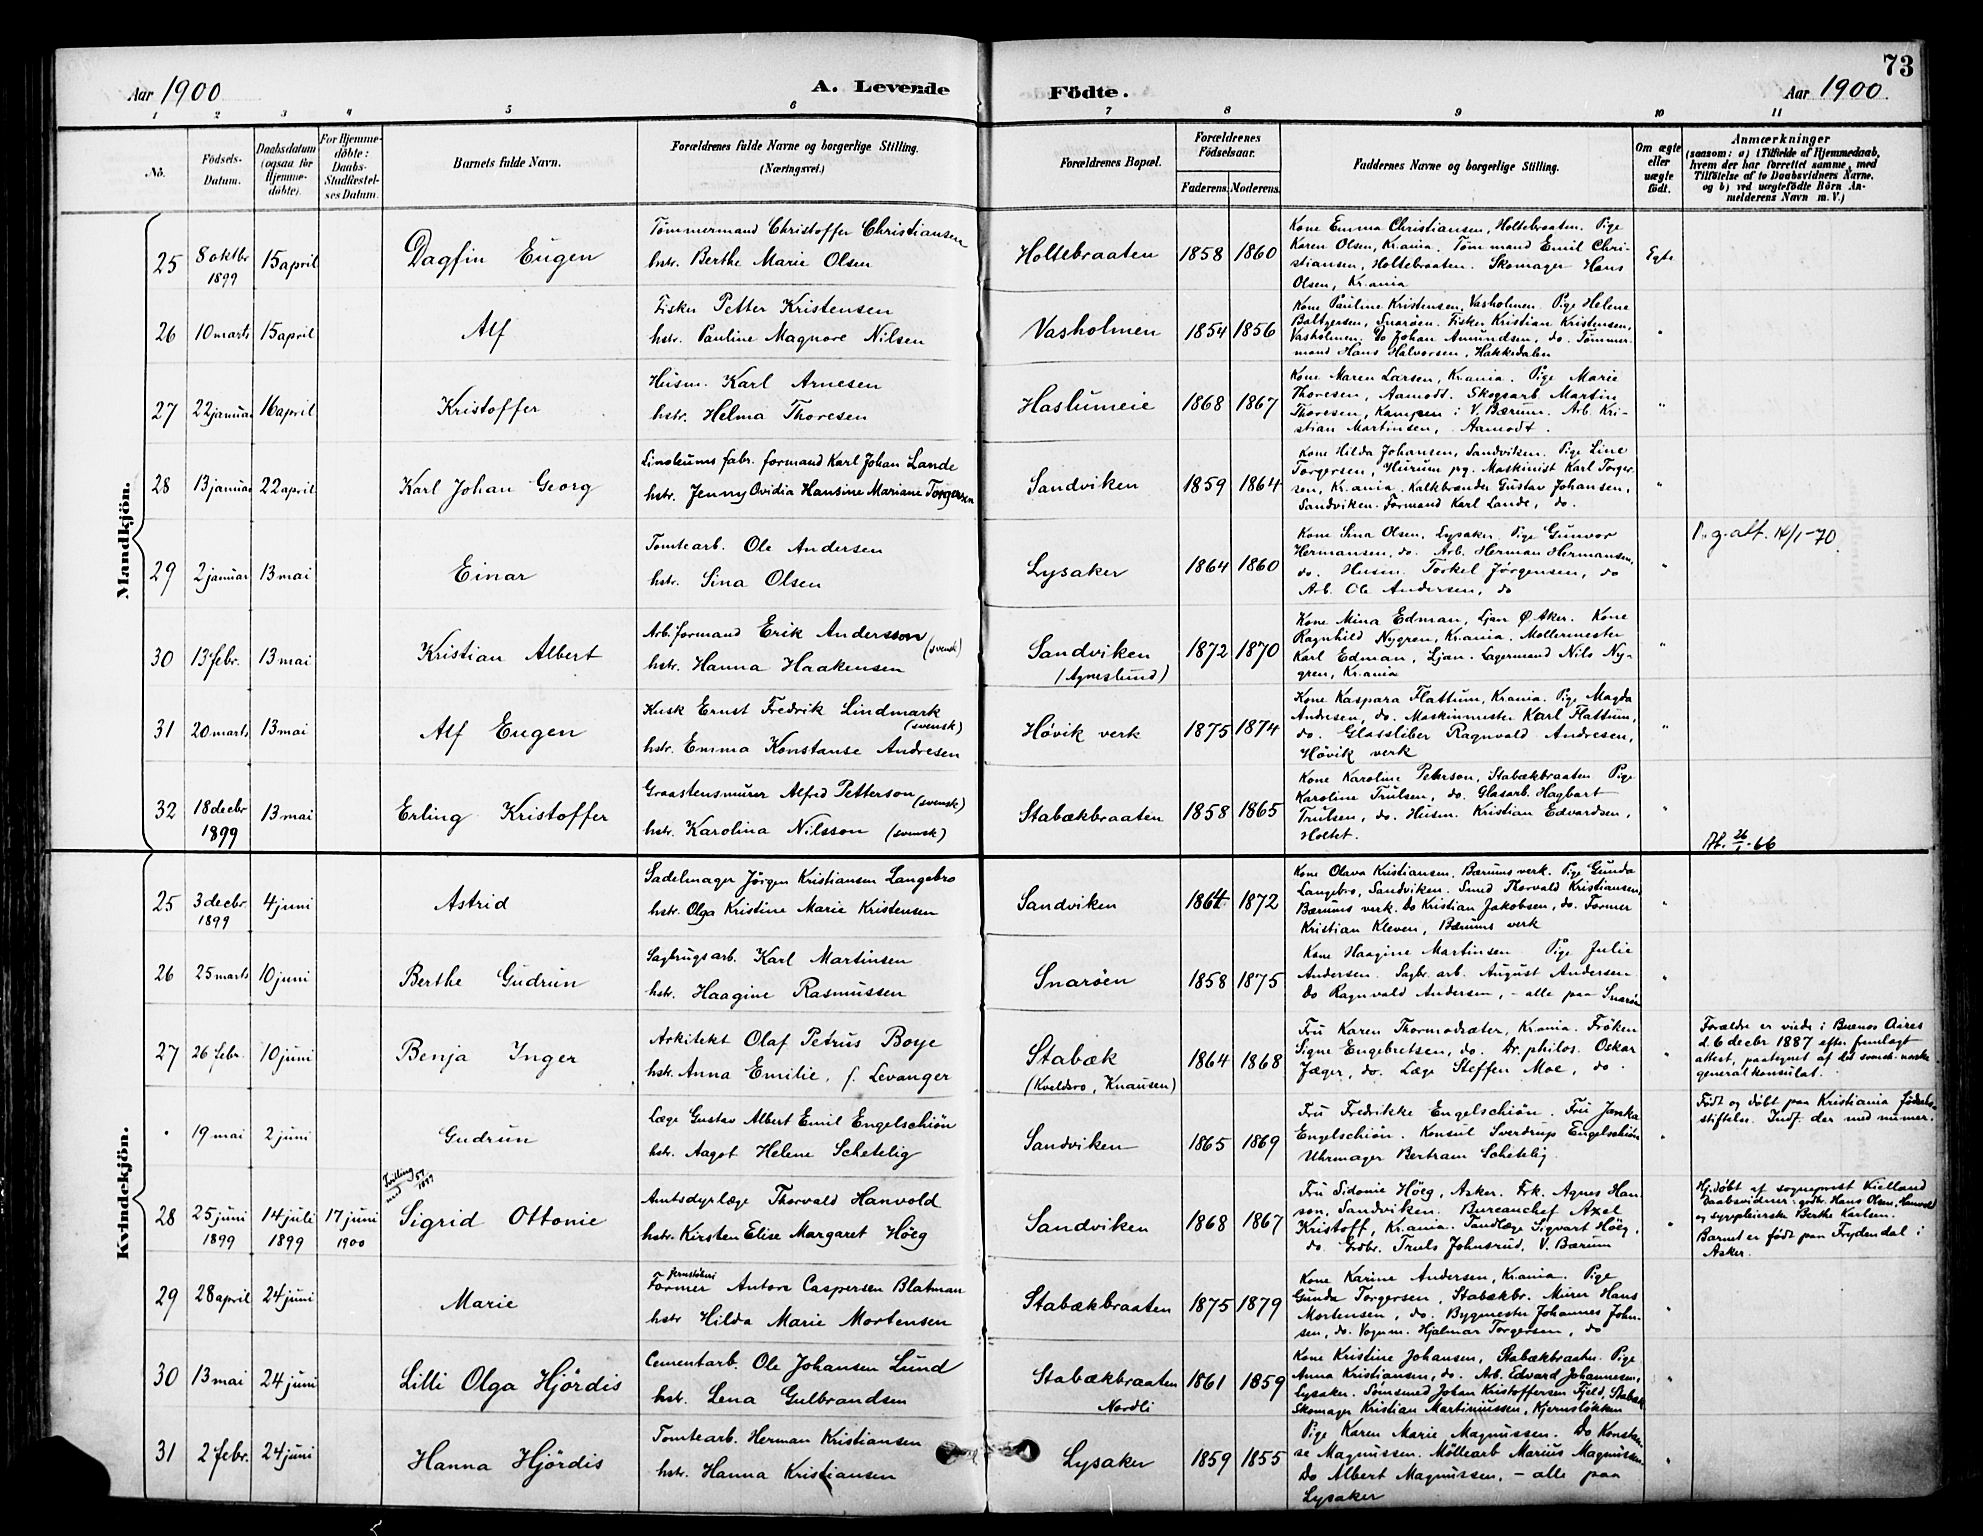 73
Aar 1900
A. Levende
Födte.
Aar 1900
1 2 3 4 5 6 7 8 9 10 11
No.
Födsels-
Datum.
Daabsdatum
(ogsaa for
Hjemme-
döbte).
For Hjemme-
döbte:
Daabs-
Stadfæstel-
ses Datum.
Barnets fulde Navn.
Forældrenes fulde Navne og borgerlige Stilling.
(Næringsvei.)
Forældrenes Bopæl.
Forældrenes
Födselsaar.
Faderens. Moderens.
Faddernes Navne og borgerlige Stilling.
Om ægte
eller
uægte
födt.
Anmærkninger
(saasom: a) i Tilfælde af Hjemmedaab,
hvem der har forrettet samme, med
Tilföielse af to Daabsvidners Navne,
og b) ved uægtefödte Börn An-
melderens Navn m. V.)
Mandkjön.
25 8 oktbr 1899 15 april
Dagfin Eugen
Tömmermand Christoffer Christiansen
hstr. Berthe Marie Olsen
Holtebraaten 1858 1860
Kone Emma Christiansen, Holtebraaten. Pige
Karen Olsen, Kr.ania. Töm mand Emil Chri-
stiansen, Holtebraaten. Skomager Hans
Olsen, Kr.ania
Egte
26 10 marts 15 april
Alf
Fisker Petter Kristensen
hstr. Pauline Magnore Nilsen
Vasholmen 1854 1856
Kone Pauline Kristensen, Vasholmen. Pige Helene
Baltzersen, Snaröen. Fisker Kristian Kristensen,
Vasholmen. Do Johan Amundsen, do. Tömmer-
mand Hans Halvorsen, Hakksdalen
"
27 22 januar 16 april
Kristoffer
Husm. Karl Arnesen
hstr. Helma Thoresen
Haslumeie 1868 1867
Kone Maren Larsen, Kr.ania. Pige Marie
Thoresen, Aamodt. Skogsarb. Martin
Thoresen, Kampen i V. Bærum. Arb. Kri-
stian Martinsen, Aamodt.
"
28 13 januar 22 april
Karl Johan Georg
Linoleums fabr. formand Karl Johan Lande
hstr. Jenny Ovidia Hansine Mariane Torgersen
Sandviken 1859 1864
Kone Hilda Johansen, Sandviken. Pige Line
Torgersen, Hurum pg. Maskinist Karl Torger-
sen, Kr.ania. Kalkbrænder Gustav Johansen,
Sandviken. Formand Karl Lande, do.
"
29 2 januar 13 mai
Einar
Tomtearb. Ole Andersen
hstr. Sina Olsen
Lysaker 1864 1860
Kone Sina Olsen, Lysaker. Pige Gunvor
Hermansen, do. Arb. Herman Hermansen,
do. Husm. Torkel Jörgensen, do
Arb. Ole Andersen, do
"
P.g.att. 14/1-70
30 13 febr. 13 mai
Kristian Albert
Arb.formand Erik Andersson (svensk)
hstr. Hanna Haakensen
Sandviken
(Agneslund)
1872 1870
Kone Mina Edman, Ljan Ø Aker. Kone
Ragnhild Nygren, Kr.ania. Møllermester
Karl Edman, Ljan. Lagermand Nils Ny-
gren, Kr.ania
"
31 20 marts 13 mai
Alf Eugen
Kusk Ernst Fredrik Lindmark
(svensk)
hstr. Emma Konstanse Andresen
Høvik verk 1875 1874
Kone Kaspara Flattum, Kr.ania. Pige Magda
Andresen, do. Maskinmester Karl Flattum,
do. Glassliber Ragnvald Andresen,
Høvik verk
"
32 18 decbr 1899 13 mai
Erling Kristoffer
Graastensmurer Alfred Petterson (svensk)
hstr. Karolina Nilsson (svensk)
Stabækbraaten 1858 1865
Kone Karoline Peterson, Stabækbraaten. Pige
Karoline Trulsen, do. Glasarb. Hagbart
Trulsen, do. Husm. Kristian Edvardsen,
Holtet.
"
Att. 26/1-66
Kvindekjön.
25 3 decbr 1899 4 juni
Astrid
Sadelmager Jörgen Kristiansen Langebro
hstr. Olga Kristine Marie Kristensen
Sandviken 1864 1872
Kone Olava Kristiansen, Bærums verk. Pige Gunda
Langebro, Sandviken. Smed Thorvald Kristiansen,
Bærums verk. Do Kristian Jakobsen, do. Former
Kristian Kleven, Bærums verk
"
26 25 marts 10 juni
Berthe Gudrun
Sagbrugsarb. Karl Martinsen
hstr. Haagine Rasmussen
Snaröen 1858 1875
Kone Haagine Martinsen. Pige Julie
Andersen. Sagbr. arb. August Andersen
Do Ragnvald Andersen, - alle paa Snaröen
"
27 26 febr. 10 juni
Benja Inger
Arkitekt Olaf Petrus Boye
hstr. Anna Emilie, f. Levanger
Stabæk
(Kveldsro, Knausen)
1864 1868
Fru Karen Thormodsæter, Kr.ania. Fröken
Signe Engebretsen, do. Dr. philos. Oskar
Jæger, do. Læge Steffen Moe, do.
"
Forældre er viede i Buenos Aires
d. 6 decbr 1887 efter fremlagt
attest, paategnet af det svensk-norske
generalkonsulat.
" 19 mai 2 juni
Gudrun
Læge Gustav Albert Emil Engelschiön
hstr. Aagot Helene Schetelig
Sandviken 1865 1869
Fru Fredrikke Engelschiön. Fru
Engelschiön. Konsul Sverdrup Engelschiön
Uhrmager Bertram Schetelig.
"
Født og døbt paa Kristiania fødsels-
stiftelse. Indf. der med numer.
28 25 juni 1899 14 juli 1899 17 juni 1900
Tvilling med
Sigrid Ottonie
Amtsdyrlæge Thorvald Hanvold
hstr. Kirsten Elise Margaret Höeg
Sandviken 1868 1867
Fru Sidonie Höeg, Asker. Frk. Agnes Han-
son, Sandviken. Bureauchef Axel
Kristoff, Kr.ania. Tandlæge Sigvart Höeg,
do. Grdbr. Truls Johnsrud, V. Bærum
"
Hj.døbt af sogneprest Kielland
Daabsvidner: godtr. Hans Olsen, Hanvold
og sygepleierske Berthe Karlsen.
Barnet er født paa Frydendal i
Asker.
29 28 april 24 juni
Marie
Jernstöberi
Former Anton Caspersen Blatman
hstr Hilda Marie Mortensen
Stabækbraaten 1875 1879
Kone Karine Andersen, Kr.ania. Pige
Gunda Torgersen, Stabækbr. Murer Hans
Mortensen, do. Bygmester Johannes John-
sen, do. Vognm. Hjalmar Torgersen, do
"
30 13 mai 24 juni
Lilli Olga Hjördis
Cementarb. Ole Johansen Lund
hstr. Lena Gulbrandsen
Stabækbraaten
Nordli
1861 1859
Kone Kristine Johansen, Stabækbraaten. Pige
Anna Kristiansen, do. Arb. Edvard Johannesen,
Lysaker. Sömsmed Johan Kristoffersen Fjeld, Stabæk
Skomager Kristian Martiniussen, Kjernsløkken
"
31 2 febr. 24 juni
Hanna Hjördis
Tomtearb. Herman Kristiansen
hstr. Hanna Kristiansen
Lysaker 1859 1855
Pige Karen Marie Magnussen. Do Konstan-
se Magnussen. Möllearb Marius Magnussen
Do Albert Magnussen, - alle paa
Lysaker
"